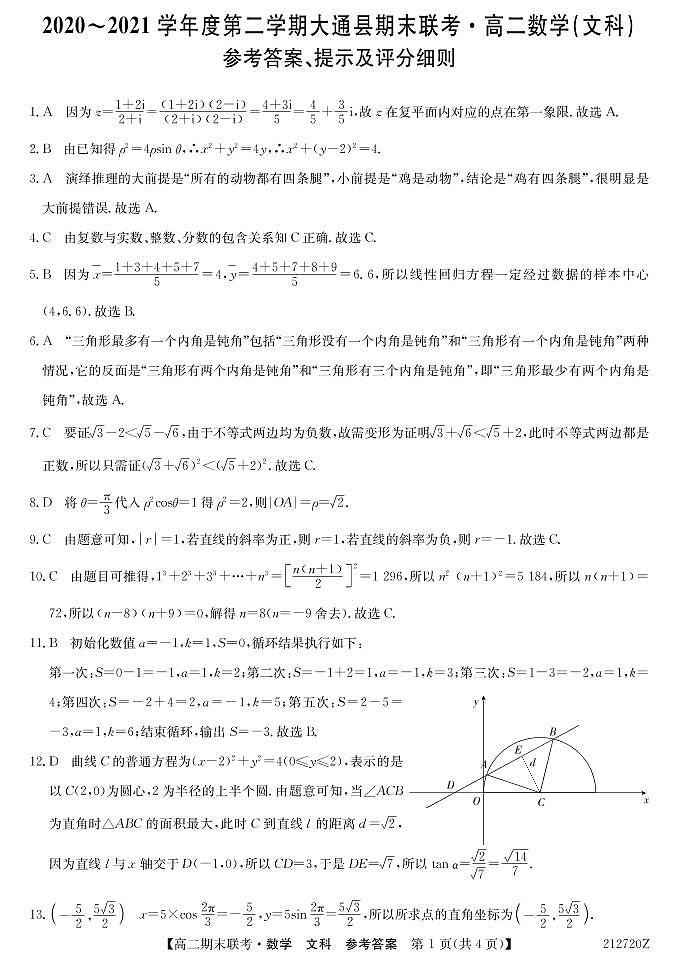 2020～2021学年度第二学期大通县期末联考·高二数学(文科)
参考答案、提示及评分细则
1. A　因为 z=\frac{1+2i}{2+i}=\frac{(1+2i)(2-i)}{(2+i)(2-i)}=\frac{4+3i}{5}=\frac{4}{5}+\frac{3}{5}i,故 z 在复平面内对应的点在第一象限.故选 A.
2. B　由已知得 ρ²=4ρsin θ,∴x²+y²=4y,∴x²+(y-2)²=4.
3. A　演绎推理的大前提是“所有的动物都有四条腿”,小前提是“鸡是动物”,结论是“鸡有四条腿”,很明显是
大前提错误.故选 A.
4. C　由复数与实数、整数、分数的包含关系知 C 正确.故选 C.
5. B　因为 \overline{x}=\frac{1+3+4+5+7}{5}=4,\overline{y}=\frac{4+5+7+8+9}{5}=6.6,所以线性回归方程一定经过数据的样本中心
(4,6.6).故选 B.
6. A　“三角形最多有一个内角是钝角”包括“三角形没有一个内角是钝角”和“三角形有一个内角是钝角”两种
情况,它的反面是“三角形有两个内角是钝角”和“三角形有三个内角是钝角”,即“三角形最少有两个内角是
钝角”,故选 A.
7. C　要证√3-2<√5-√6,由于不等式两边均为负数,故需变形为证明√3+√6<√5+2,此时不等式两边都是
正数,所以只需证(√3+√6)²<(√5+2)².故选 C.
8. D　将 θ=\frac{π}{3}代入 ρ²cosθ=1 得 ρ²=2,则|OA|=ρ=√2.
9. C　由题意可知,|r|=1,若直线的斜率为正,则 r=1,若直线的斜率为负,则 r=-1.故选 C.
10. C　由题目可推得,1³+2³+3³+…+n³=[\frac{n(n+1)}{2}]²=1 296,所以 n² (n+1)²=5 184,所以 n(n+1)=
72,所以(n-8)(n+9)=0,解得 n=8(n=-9 舍去).故选 C.
11. B　初始化数值 a=-1,k=1,S=0,循环结果执行如下:
第一次:S=0-1=-1,a=1,k=2;第二次:S=-1+2=1,a=-1,k=3;第三次:S=1-3=-2,a=1,k=
4;第四次:S=-2+4=2,a=-1,k=5;第五次:S=2-5=
-3,a=1,k=6;结束循环,输出 S=-3.故选 B.
12. D　曲线 C 的普通方程为(x-2)²+y²=4(0≤y≤2),表示的是
以 C(2,0)为圆心,2 为半径的上半个圆.由题意可知,当∠ACB
为直角时△ABC 的面积最大,此时 C 到直线 l 的距离 d=√2,
因为直线 l 与 x 轴交于 D(-1,0),所以 CD=3,于是 DE=√7,所以 tan α=\frac{√2}{√7}=\frac{√14}{7}.
y
B
E
A
d
D
O
C
x
13. (-\frac{5}{2},\frac{5√3}{2})　x=5×cos \frac{2π}{3}=-\frac{5}{2},y=5sin \frac{2π}{3}=\frac{5√3}{2},所以所求点的直角坐标为(-\frac{5}{2},\frac{5√3}{2}).
【高二期末联考·数学　文科　参考答案　第 1 页(共 4 页)】　212720Z